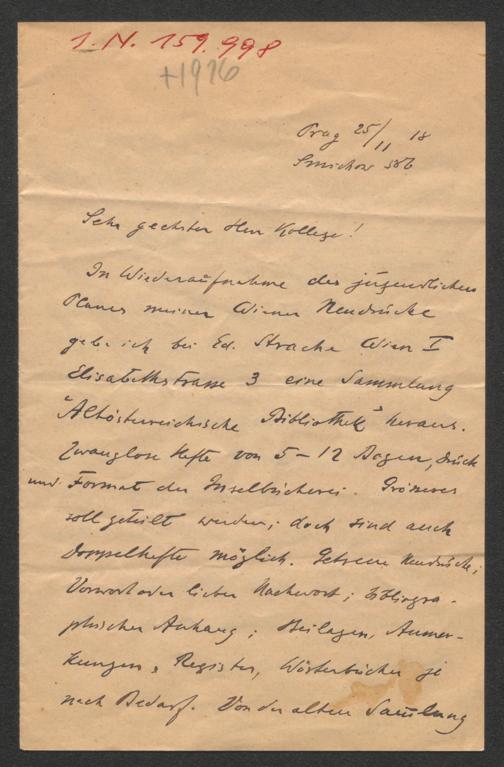 I. N. 159.998
+1976
Prag 25/11 18
Smichow 586
Sehr geehrter Herr Kollege!
In Wiederaufnahme des jugendlichen
Planes meiner Wiener Neudrucke
gebe ich bei Ed. Strache Wien I
Elisabethstrasse 3 eine Sammlung
"Altösterreichische Bibliothek" heraus.
Zwanglose Hefte von 5–12 Bogen, Druck
und Format der Inselbücherei. Grösseres
soll geteilt werden; doch sind auch
Doppelhefte möglich. Getreue Neudrucke;
Vorwort oder lieber Nachwort; bibliogra-
phischer Anhang; Beilagen, Anmer-
kungen, Register, Wörterbücher je
nach Bedarf. Von der alten Samlung